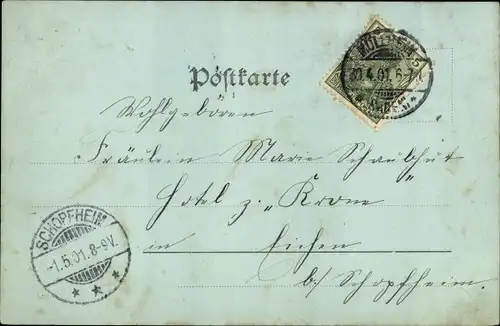 MÜLLHEIM
30.4.01.6-7N
Postkarte
Wohlgeboren
Fräulein Marie Schaubhut
Hotel z. „Krone
in Eichen
b/ Schopfheim.
SCHOPFHEIM
-1.5.01.8-9V.